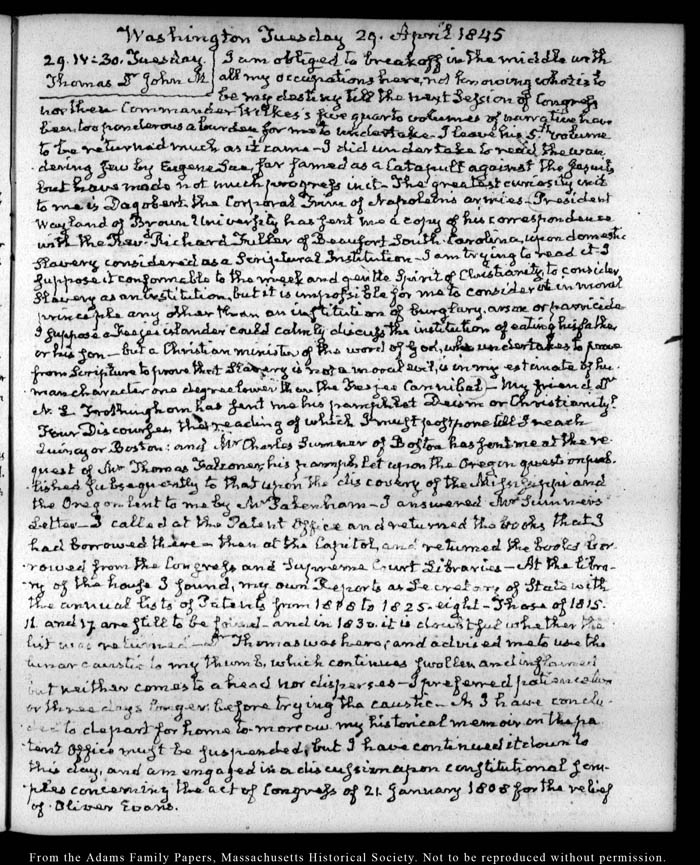 Washington Tuesday 29. April 1845
29. IV:30. Tuesday.
Thomas Dr John M.
I am obliged to break off in the middle with
all my occupations here, not knowing what is to
be my destiny till the next Session of Congress
nor then Commander Wilkes's five quarto volumes of narrative have
been too ponderous a burden for me to undertake. I leave his 5th. volume
to be returned much as it came - I did undertake to read the wan-
dering Jew by Eugene Sue, far famed as a Catapult against the Jesuits
but have made not much progress in it - The greatest curiosity in it
to me is Dagobert the Corporal Trim of Napoleons armies - President
Wayland of Brown University has sent me a copy of his correspondence
with the Revd. Richard Fuller of Beaufort South Carolina, upon domestic
Slavery considered as a Scriptural Institution - I am trying to read it - I
suppose it conformable to the meek and gentle Spirit of Christianity, to consider
Slavery as an institution, but it is impossible for me to consider it in moral
principle any other than an institution of burglary, arson or parricide
I suppose a Feejee islander could calmly discuss the institution of eating his father
or his son - but a Christian minister of the word of God, who undertakes to prove
from Scripture to prove that Slavery is not a moral evil, is in my estimate of hu-
man character one degree lower than the Feejee Cannibal - My friend Dr
N. L. Frothingham has sent me his pamphlet Deism or Christianity?
Four Discourses, the reading of which I must postpone till I reach
Quincy or Boston: and Mr Charles Sumner of Boston has sent me at the re-
quest of Mr Thomas Falconer, his pamphlet upon the Oregon question pub-
lished subsequently to that upon the discovery of the Mississippi and
the Oregon lent to me by Mr Pakenham - I answered Mr Sumner's
Letter - I called at the Patent Office and returned the books that I
had borrowed there - then at the Capitol, and returned the books bor-
rowed from the Congress and Supreme Court Libraries - At the libra-
ry of the house I found, my own Reports as Secretary of State with
the annual lists of Patents from 1818 to 1825. eight - Those of 1815.
16 and 17 are still to be found - and in 1830. it is doubtful whether the
list was returned - Dr Thomas was here, and advised me to use the
lunar caustic to my thumb, which continues swollen and inflamed
but neither comes to a head nor disperses - I preferred patience two
or three days longer, before trying the caustic - As I have conclu-
ded to depart for home to-morrow my historical memoir on the pa-
tent Office must be suspended, but I have continued it down to
this day, and am engaged in a discussion upon constitutional scru-
ples concerning the act of Congress of 21. January 1808 for the relief
of Oliver Evans.
From the Adams Family Papers, Massachusetts Historical Society. Not to be reproduced without permission.